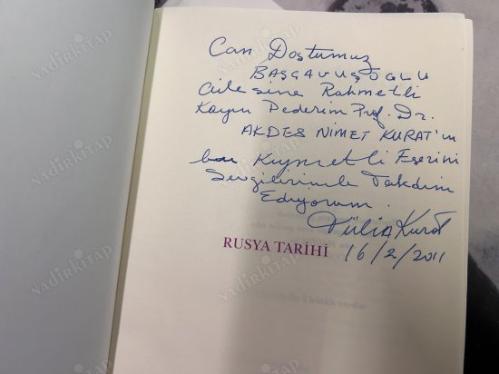 Can Dostumuz
BAŞÇAVUŞOĞLU
ailesine Rahmetli
Kayın Pederim Prof. Dr.
AKDES NİMET KURAT'ın
bu Kıymetli Eserini
Sevgilerimle Takdim
Ediyorum.
Tülin Kurat
16/2/2011
RUSYA TARİHİ
nadirkitap